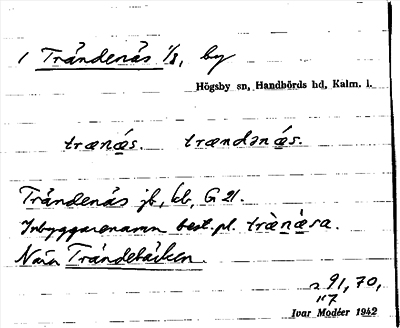 1 Tråndenäs 1/8, by
Högsby sn, Handbörds hd, Kalm. l.
trænæs. trændənæs.
Tråndenäs jb, kb, G 21.
Inbyggarenamn best. pl. trænæsa.
Nära Tråndebäcken.
91, 70,
Ivar Modéer 1942